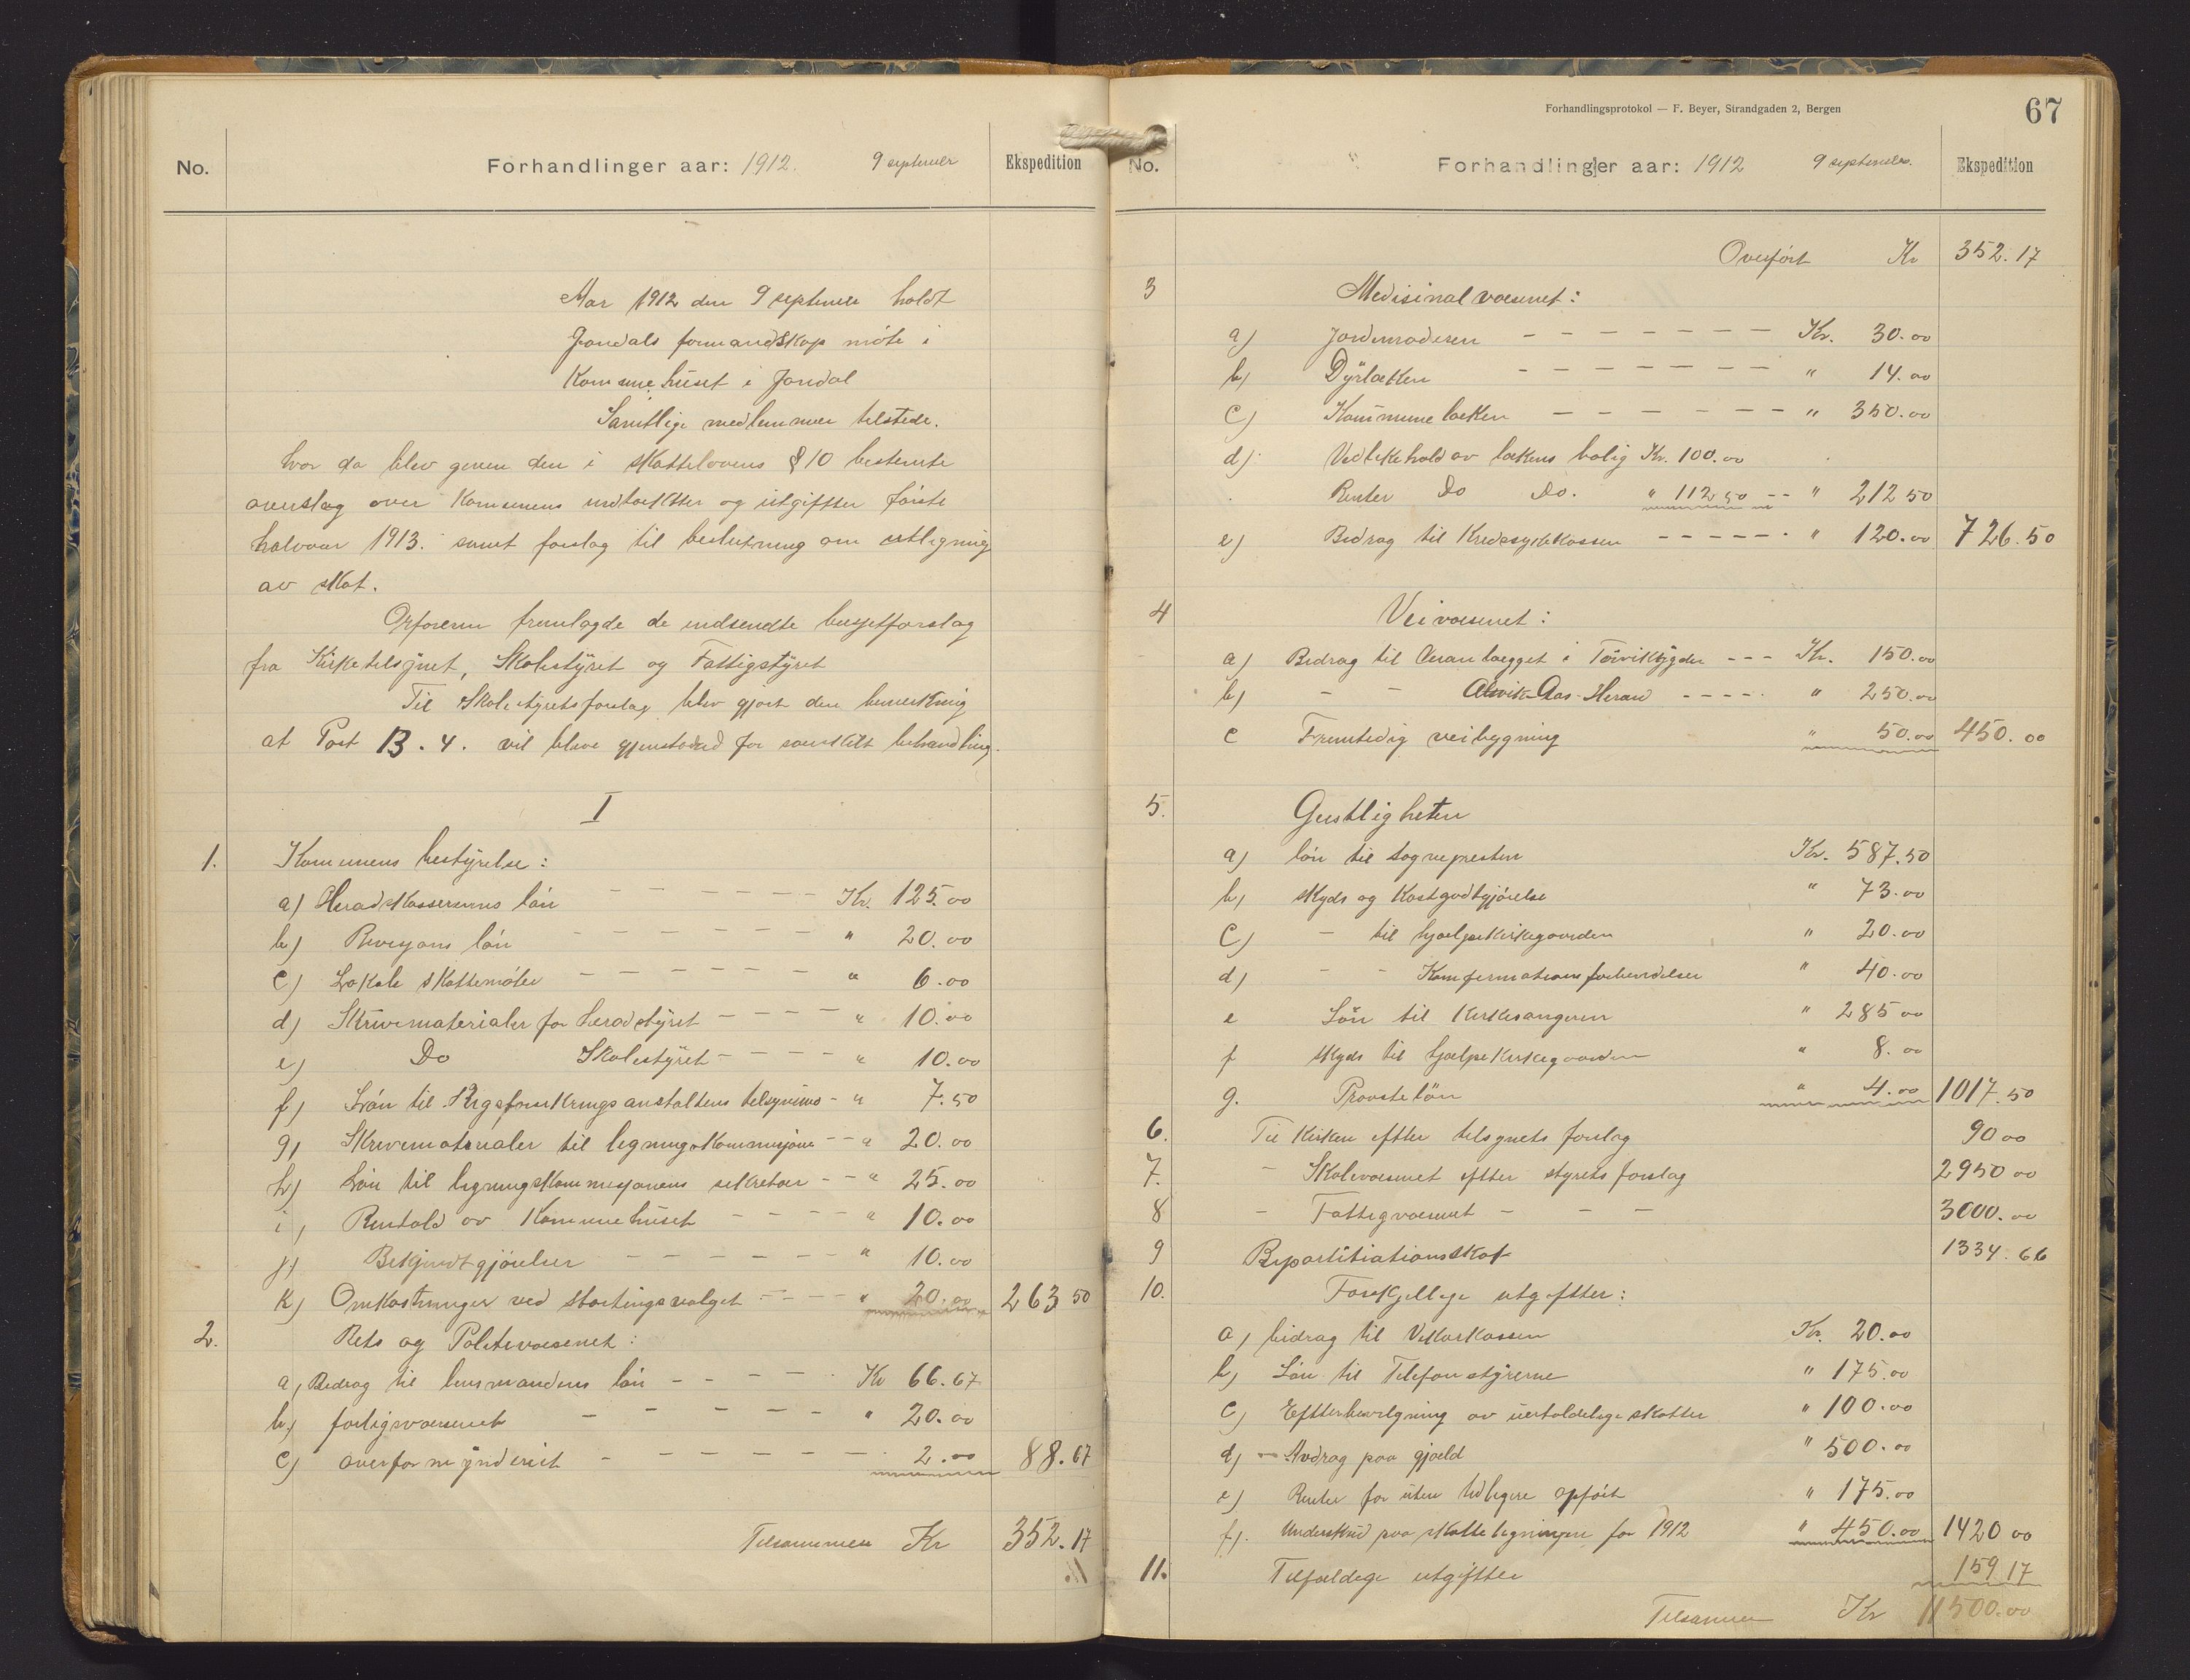 No. Forhandlinger aar: 1912. 9 september Ekspedition
Aar 1912 den 9 september holdt
Jondals formandskap møte i
Kommunehuset i Jondal
Samtlige medlemmer tilstede.
hvor da blev given den i skattelovens § 10 bestemte
overslag over Kommunens indtækter og utgifter første
halvaar 1913. samt forslag til beslutning om utligning
av skat.
Orføreren fremlagde de indsendte busjetforslag
fra Kirketilsynet, Skolestyret og Fattigstyret
Til Skolestyretsforslag blev gjort den bemerkning
at Post B. 4. vil blive gjenstand for særskilt behandling.
I
1. Kommunens bestyrelse:
a) Heradskassererens løn - - - - - - Kr. 125.00
b) Revisjons løn - - - - - - " 20.00
c) Lokale skattemøter - - - - - - " 6.00
d) Skrivematerialer for Heradstyret - - - - " 10.00
e) Do Skolestyret - - - - " 10.00
f) Løn til Rigsforsikringsanstaltens tilsynsmd - " 7.50
g) Skrivematerialer til ligningskommisjonen - - " 20.00
h) Løn til ligningskommisjonens sekretær - - " 25.00
i, Renhold av Kommunehuset - - - - " 10.00
j) Bekjendtgjørelser - - - - - - " 10.00
k) Omkostninger ved stortingsvalget - - - - " 20.00 263 50
2. Rets og Politivæsenet:
a, Bidrag til lensmandens løn - - - - Kr 66.67
b.) forligsvæsenet - - - - - - " 20.00
c) overformynderiet - - - - - - 2.00 88.67
Tilsammen Kr 352.17
Forhandlingsprotokol — F. Beyer, Strandgaden 2, Bergen
67
No. Forhandlinger aar: 1912 9 september. Ekspedition
Overført Kr 352.17
3 Medisinalvæsenet:
a) Jordmoderen - - - - - - - Kr. 30.00
b) Dyrlæken - - - - - - - " 14.00
c) Kommunelæken - - - - - - - " 350.00
d) Vedlikehold av lækens bolig Kr. 100.00
Renter Do Do. " 112 50 - - " 212 50
e) Bidrag til Kredssykekassen - - - - - - " 120.00 726.50
4 Veivæsenet:
a) Bidrag til Veranlægget i Torvikbygden - - - Kr. 150.00
b) - - Alsvik-Aas-Herand - - - - - " 250.00
c Fremtidig veibygning " 50.00 450.00
5. Gestligheten
a) løn til sognepresten Kr. 587.50
b, skyds og Kostgodtgjørelse " 73.00
c) - til hjælpekirkegaarden " 20.00
d) - - Komfirmationsforberedelser " 40.00
e Løn til Kirkesangeren " 285 00
f skyds til hjælpekirkegaarden " 8.00
g. Provsteløn " 4.00 1017.50
6. Til Kirken efter tilsynets forslag 90 00
7. - Skolevæsenet efter styrets forslag 2950 00
8 - Fattigvæsenet - - - 3000.00
9 Repartitiationsskat 1334.66
10. Forskjellige utgifter:
a, bidrag til Vikarkassen Kr. 20.00
b, Løn til Telefonstyrerne " 175.00
c, Efterbevilgning av uerholdelige skatter " 100.00
d, - Avdrag paa gjæld " 500.00
e) Renter for uten tidligere opført " 175.00
f). Underskud paa skatteligningen for 1912 " 450.00 1420 00
11. Tilfældige utgifter 159 17
Tilsammen Kr 11500.00